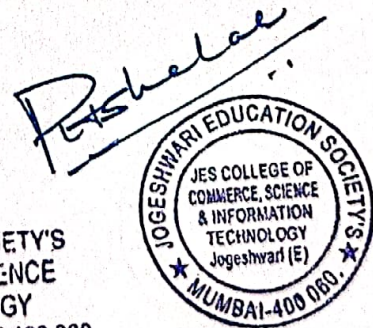 JOGESHWARI EDUCATION SOCIETY'S
JES COLLEGE OF
COMMERCE, SCIENCE
& INFORMATION
TECHNOLOGY
Jogeshwari (E)
★ MUMBAI-400 060. ★
IETY'S
ENCE
GY